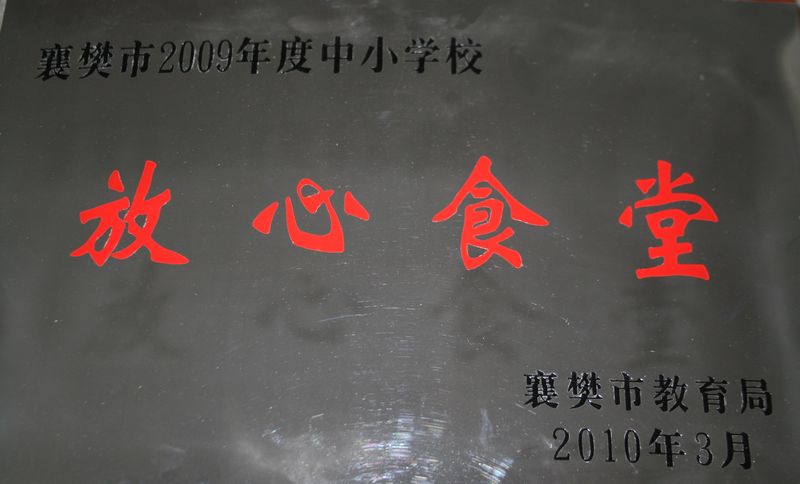 襄樊市2009年度中小学校
放心食堂
襄樊市教育局
2010年3月